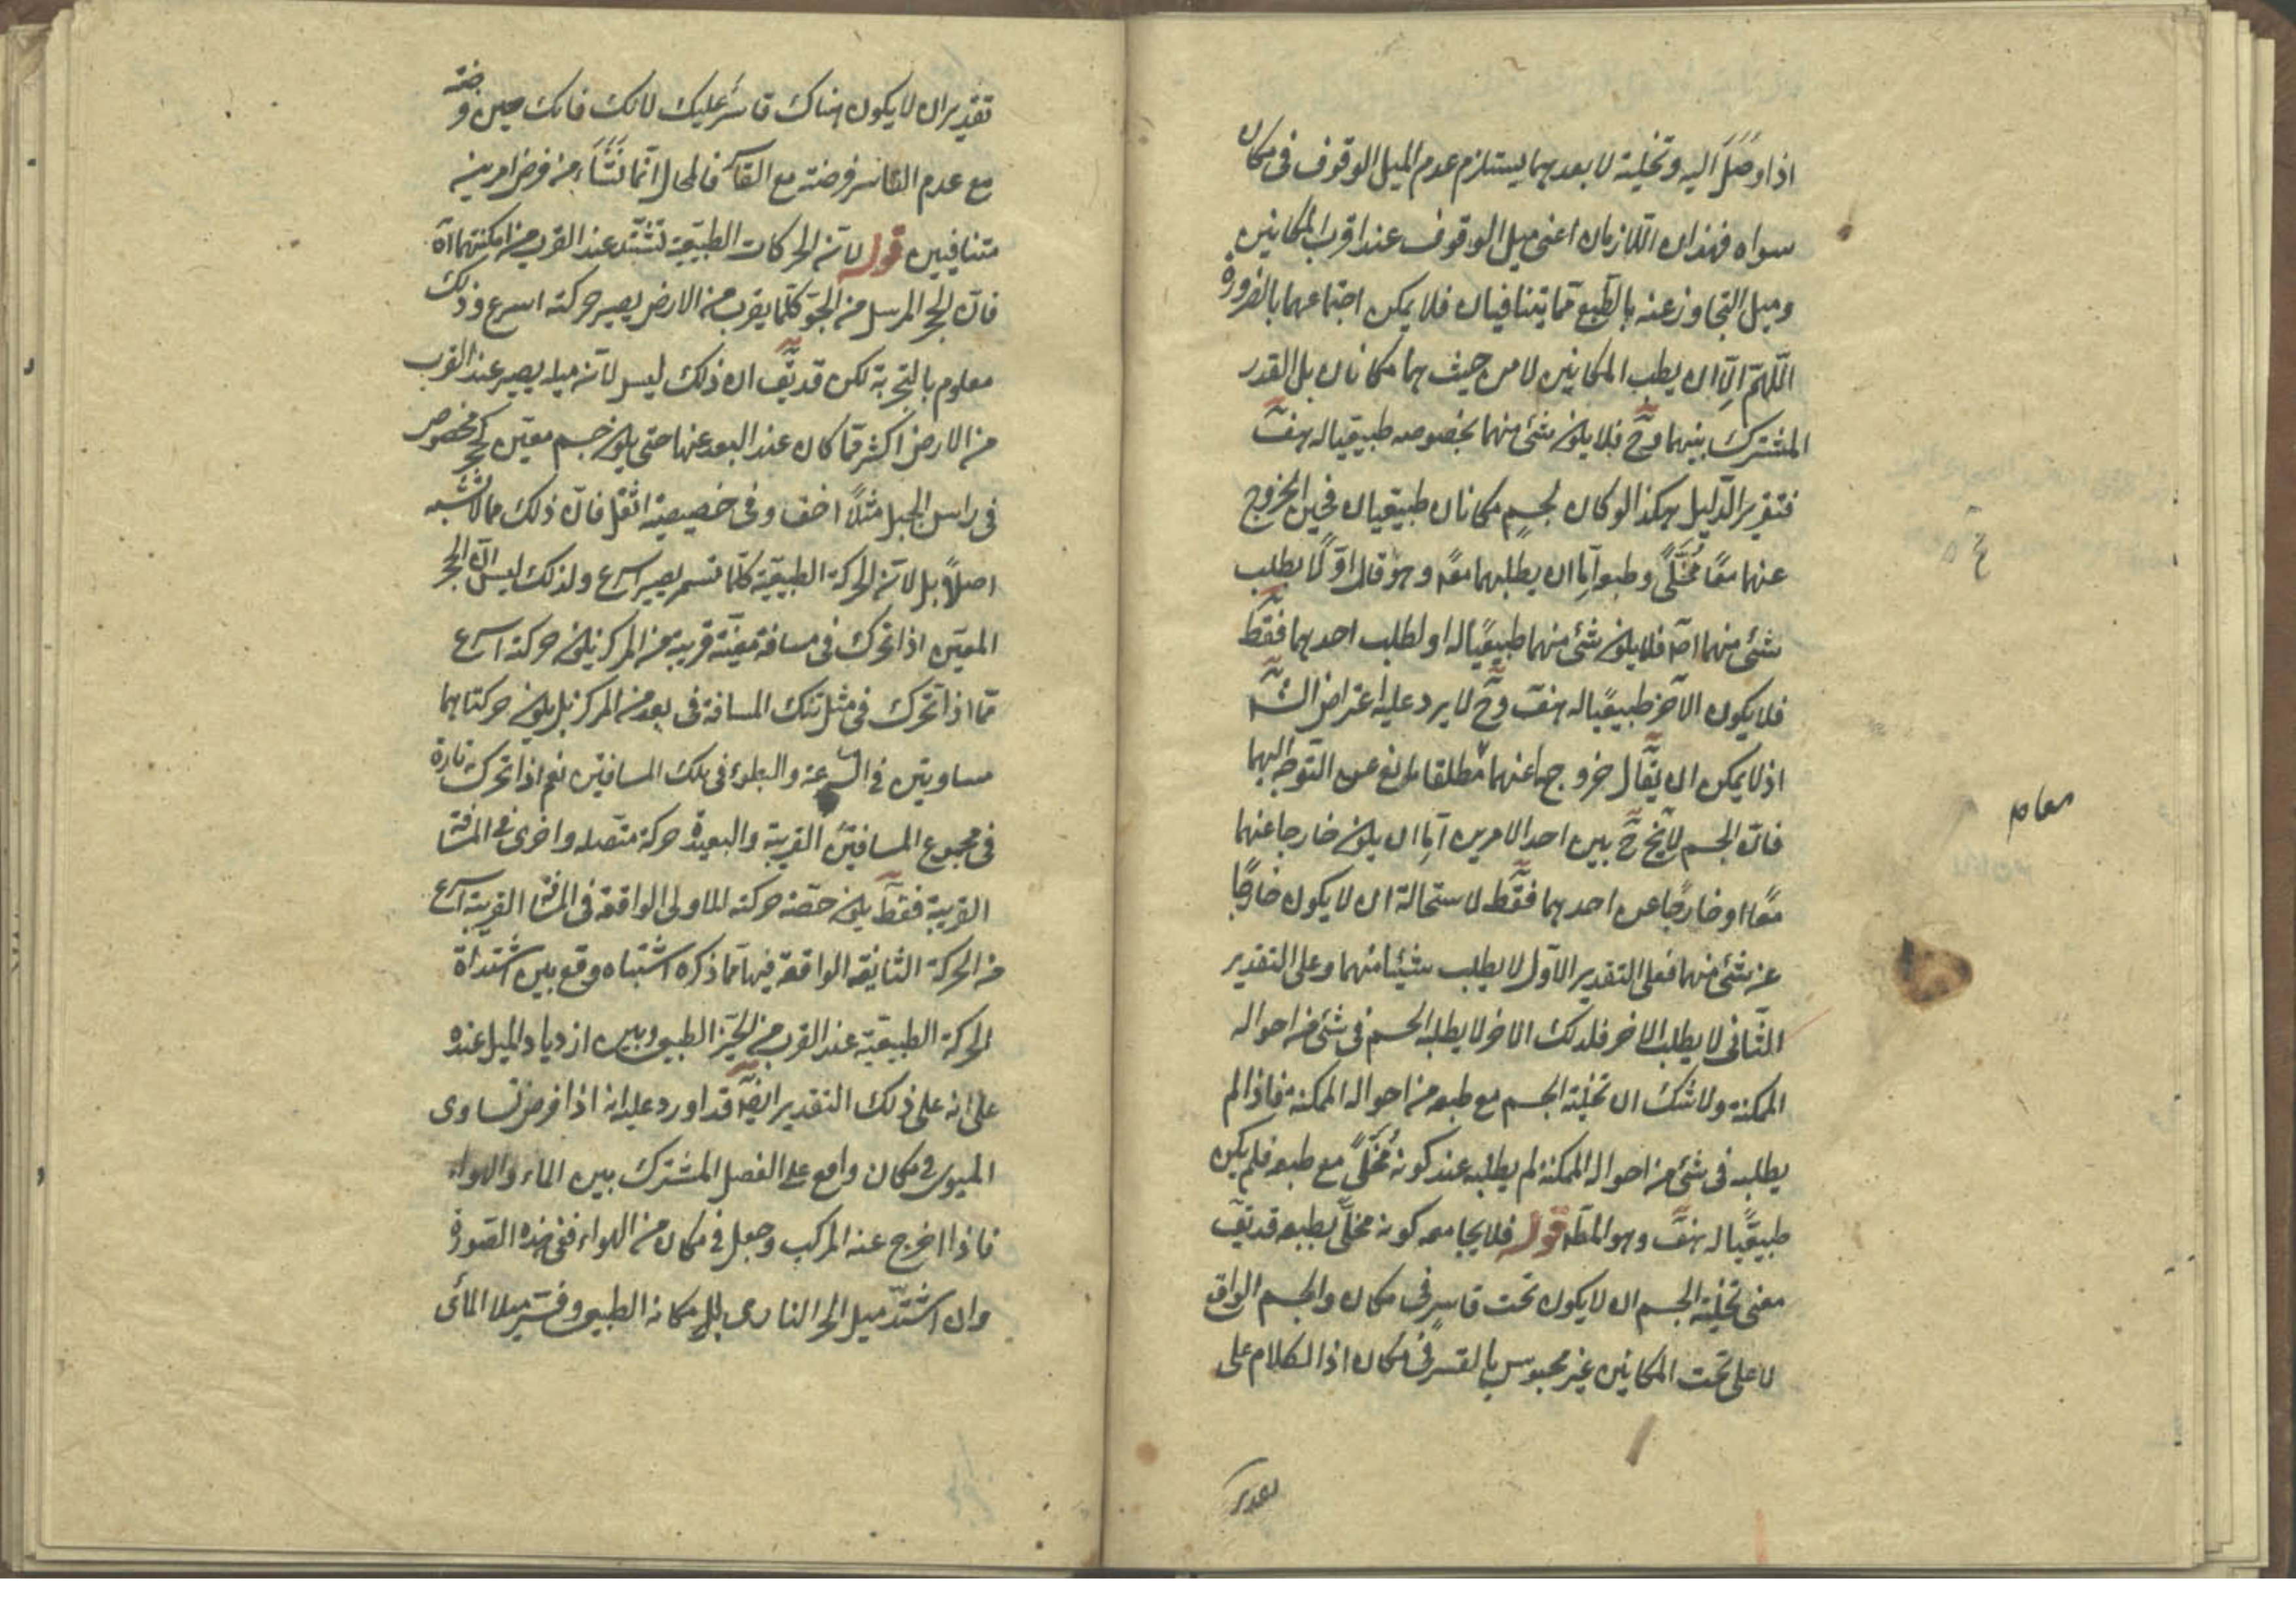 اذا وصل اليه وتخلية لا بعدهما يستلزم عدم الميل الوقوف فى مكان
سواه فهذان اللازمان اعنى ميل الوقوف عند اقرب المكانين
وميل التجاوز عنه بالطبع مما يتنافيان فلا يمكن اجتماعهما بالضرورة
اللهم الا ان يطلب المكانين لا من حيث هما مكانان بل القدر
المشترك بينهما وح فلا يكون شئ منهما بخصوصه طبيعيا له هف
فتقرير الدليل هكذا لو كان لجسم مكانان طبيعيان فحين الخروج
عنهما معًا مخلىً وطبعه اما ان يطلبهما معًا وهو قال اوّ لا يطلب
شئ منهما اصلا فلا يكون شئ منهما طبيعيًا له او لطلب احدهما فقط
فلا يكون الآخر طبيعيًا له هف وح لا يرد عليه اعتراض الشم
اذ لا يمكن ان يقال خروجها عنهما مطلقا مانع عن التوجه اليهما
فان الجسم لا يخ ح بين احد الامرين اما ان يكون خارجا عنهما
معًا او خارجًا عن احدهما فقط لاستحالة ان لا يكون خارجًا
عن شئ منهما فعلى التقدير الاول لا يطلب شيئا منهما وعلى التقدير
الثانى لا يطلب الاخر فلذلك الاخر لا يطلبه الجسم فى شئ من احواله
الممكنة ولا شك ان تخلية الجسم مع طبعه من احواله الممكنة فاذا لم
يطلبه فى شئ من احواله الممكنة لم يطلبه عند كونه مخلىً مع طبعه فلم يكن
طبيعيًا له هف وهو المط قوله فلا يجامعه كونه مخلى بطبعه قد يق
معنى تخلية الجسم ان لا يكون تحت قاسر فى مكان والجسم الواقع
لا على تحت المكانين غير محبوس بالقسر فى مكان اذ الكلام على
تقدير
تقدير ان لا يكون هناك قاسر عليك لانك فانك حين فرضته
مع عدم القاسر فرضته مع القاسر فالمحال انما نشأ من فرض امرين
متنافيين قوله لان الحركات الطبيعية تشتد عند القرب من امكنتها اه
فان الحجر المرسل من الجو كلما يقرب من الارض يصير حركته اسرع وذلك
معلوم بالتجربة لكن قد يق ان ذلك ليس لانه ميله يصير عند القرب
من الارض اكثر مما كان عند البعد عنها حتى يكون جسم معين كحجر مخصوص
فى راس الجبل مثلاً اخف وفى حضيضه اثقل فان ذلك مما لا شبه
اصلاً بل لان الحركة الطبيعية كلما تستمر يصير اسرع ولذلك ليس ان الحجر
المعين اذا تحرك فى مسافة معينة قريبة من المركز يكون حركته اسرع
مما اذا تحرك فى مثل تلك المسافة فى بعد من المركز بل يكون حركتاهما
مساويتين فى السرعة والبطوء فى تلك المسافتين نعم اذا تحرك تارة
فى مجموع المسافتين القريبة والبعيدة حركة متصله واخرى فى المسافة
القريبة فقط يكون حصة حركته الاولى الواقعة فى المسافة القريبة اسرع
من الحركة الثانية الواقعة فيها مما ذكره اشتباه وقع بين اشتداد
الحركة الطبيعية عند القرب من الحيز الطبيعى وبين ازدياد الميل عنده
على انه على ذلك التقدير ايضا قد اورد عليه انه اذا فرض تساوى
الميول فى مكان واقع على الفصل المشترك بين الماء والهواء
فاذا اخرج عنه المركب وجعل فى مكان من الهواء ففى هذه الصورة
وان اشتد ميل الجزء النارى الى مكانه الطبيعى وفتر ميل المائى